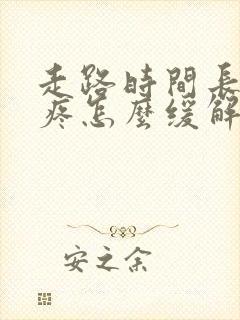 走路時間長
疼怎麼緩解
安之余